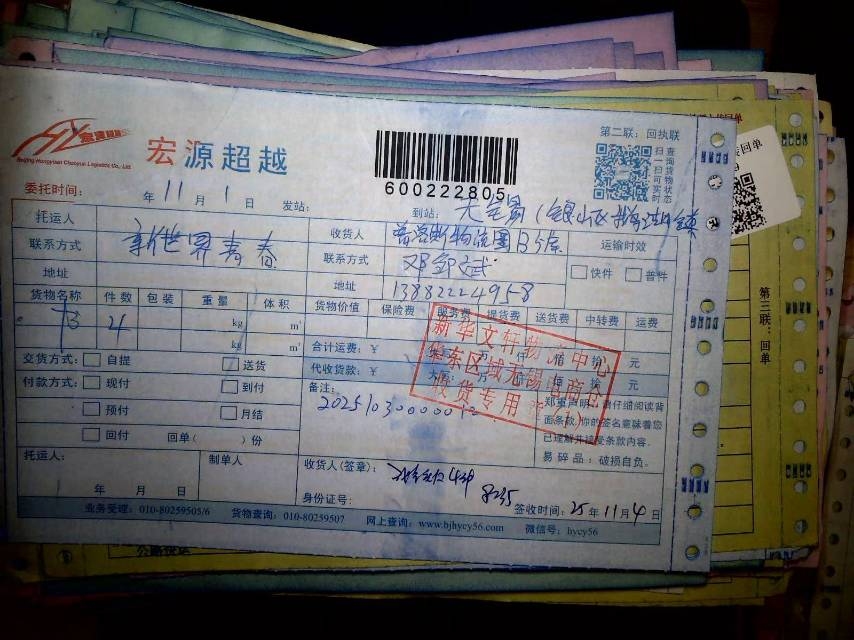 宏源超越
Beijing Hongyuan Chaoyue Logistic Co., Ltd.
600222805
第二联：回执联
扫一扫
查询货物实时状态
委托时间： 年 11 月 1 日 发站： 到站：
托运人 新世界青春
联系方式
地址
收货人 普洛斯物流园B分库
联系方式
地址 13882224958
运输时效
快件 普件
货物名称 件数 包装 重量 体积 货物价值 保险费 服务费 提货费 送货费 中转费 运费
书 4 kg m³
kg m³
合计运费：￥ 万 仟 佰 拾 元
代收货款：￥ 佰 拾 元
交货方式： 自提 送货
付款方式： 现付 到付
预付 月结
回付 回单（ ）份
备注：
新华文轩物流中心
华东区域无锡电商仓
收货专用
郑重声明：请仔细阅读背
面条款，你的签名意味着您
已理解并接受条款内容.
易碎品：破损自负.
托运人： 制单人 收货人(签章)：
8235
年 月 日 身份证号： 签收时间：25年11月4日
业务受理：010-80259505/6 货物查询：010-80259507 网上查询：www.bjhycy56.com 微信号：hycy56
第三联：回单